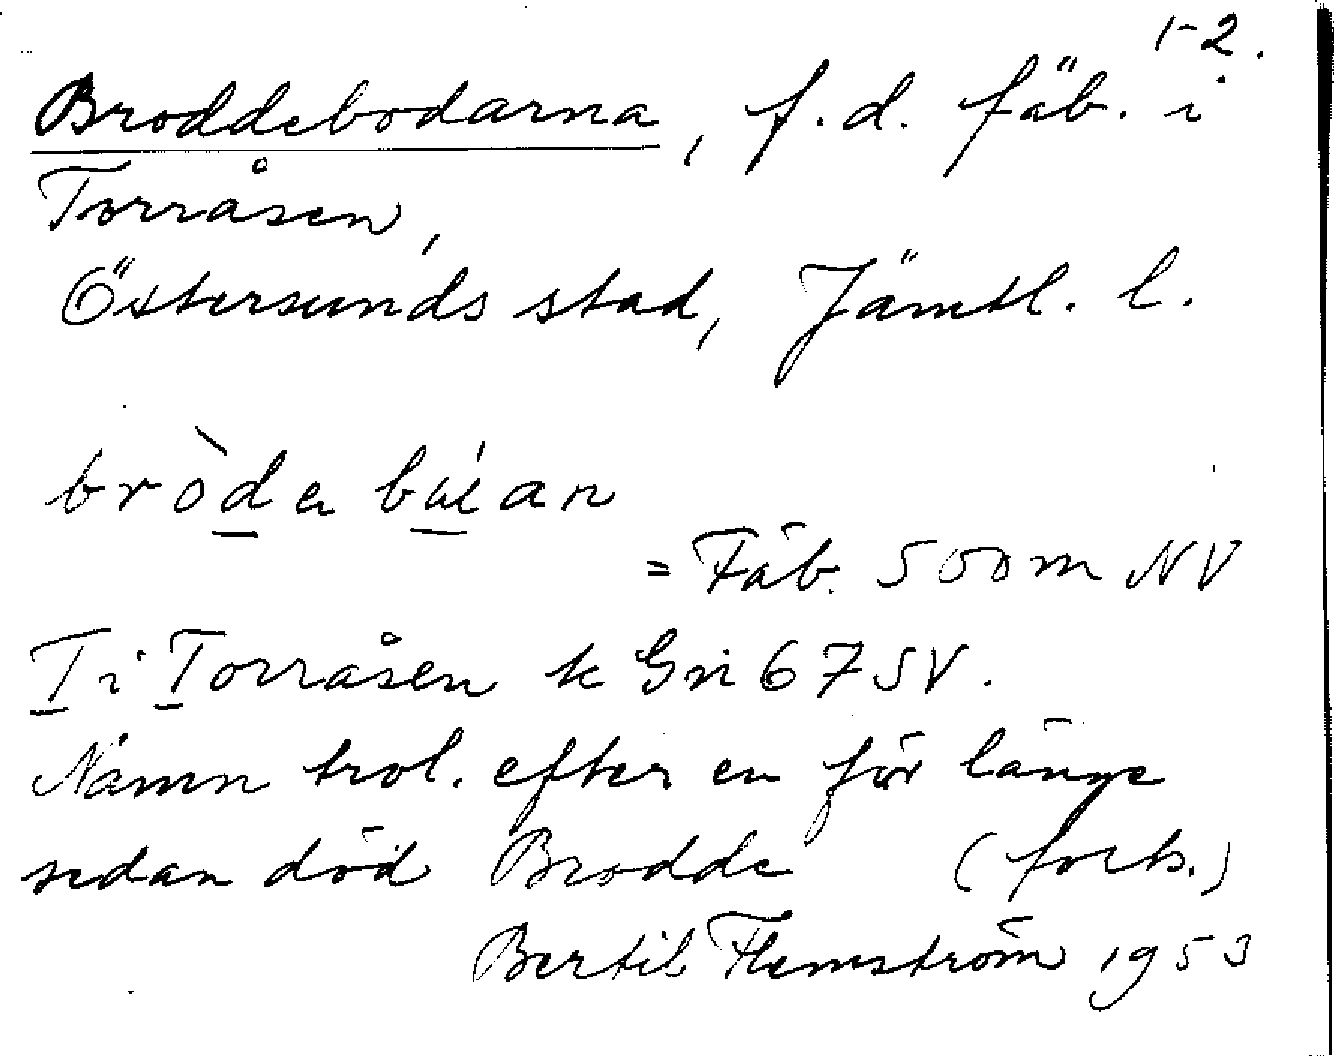 1-2.
Broddebodarna, f.d. fäb. i
Torråsen,
Östersunds stad, Jämtl. l.
= Fäb. 500 m NV
T i Torråsen k Gri 67 SV.
Namn trol. efter en för länge
sedan död Brodde (forts.)
Bertil Flemström 1953